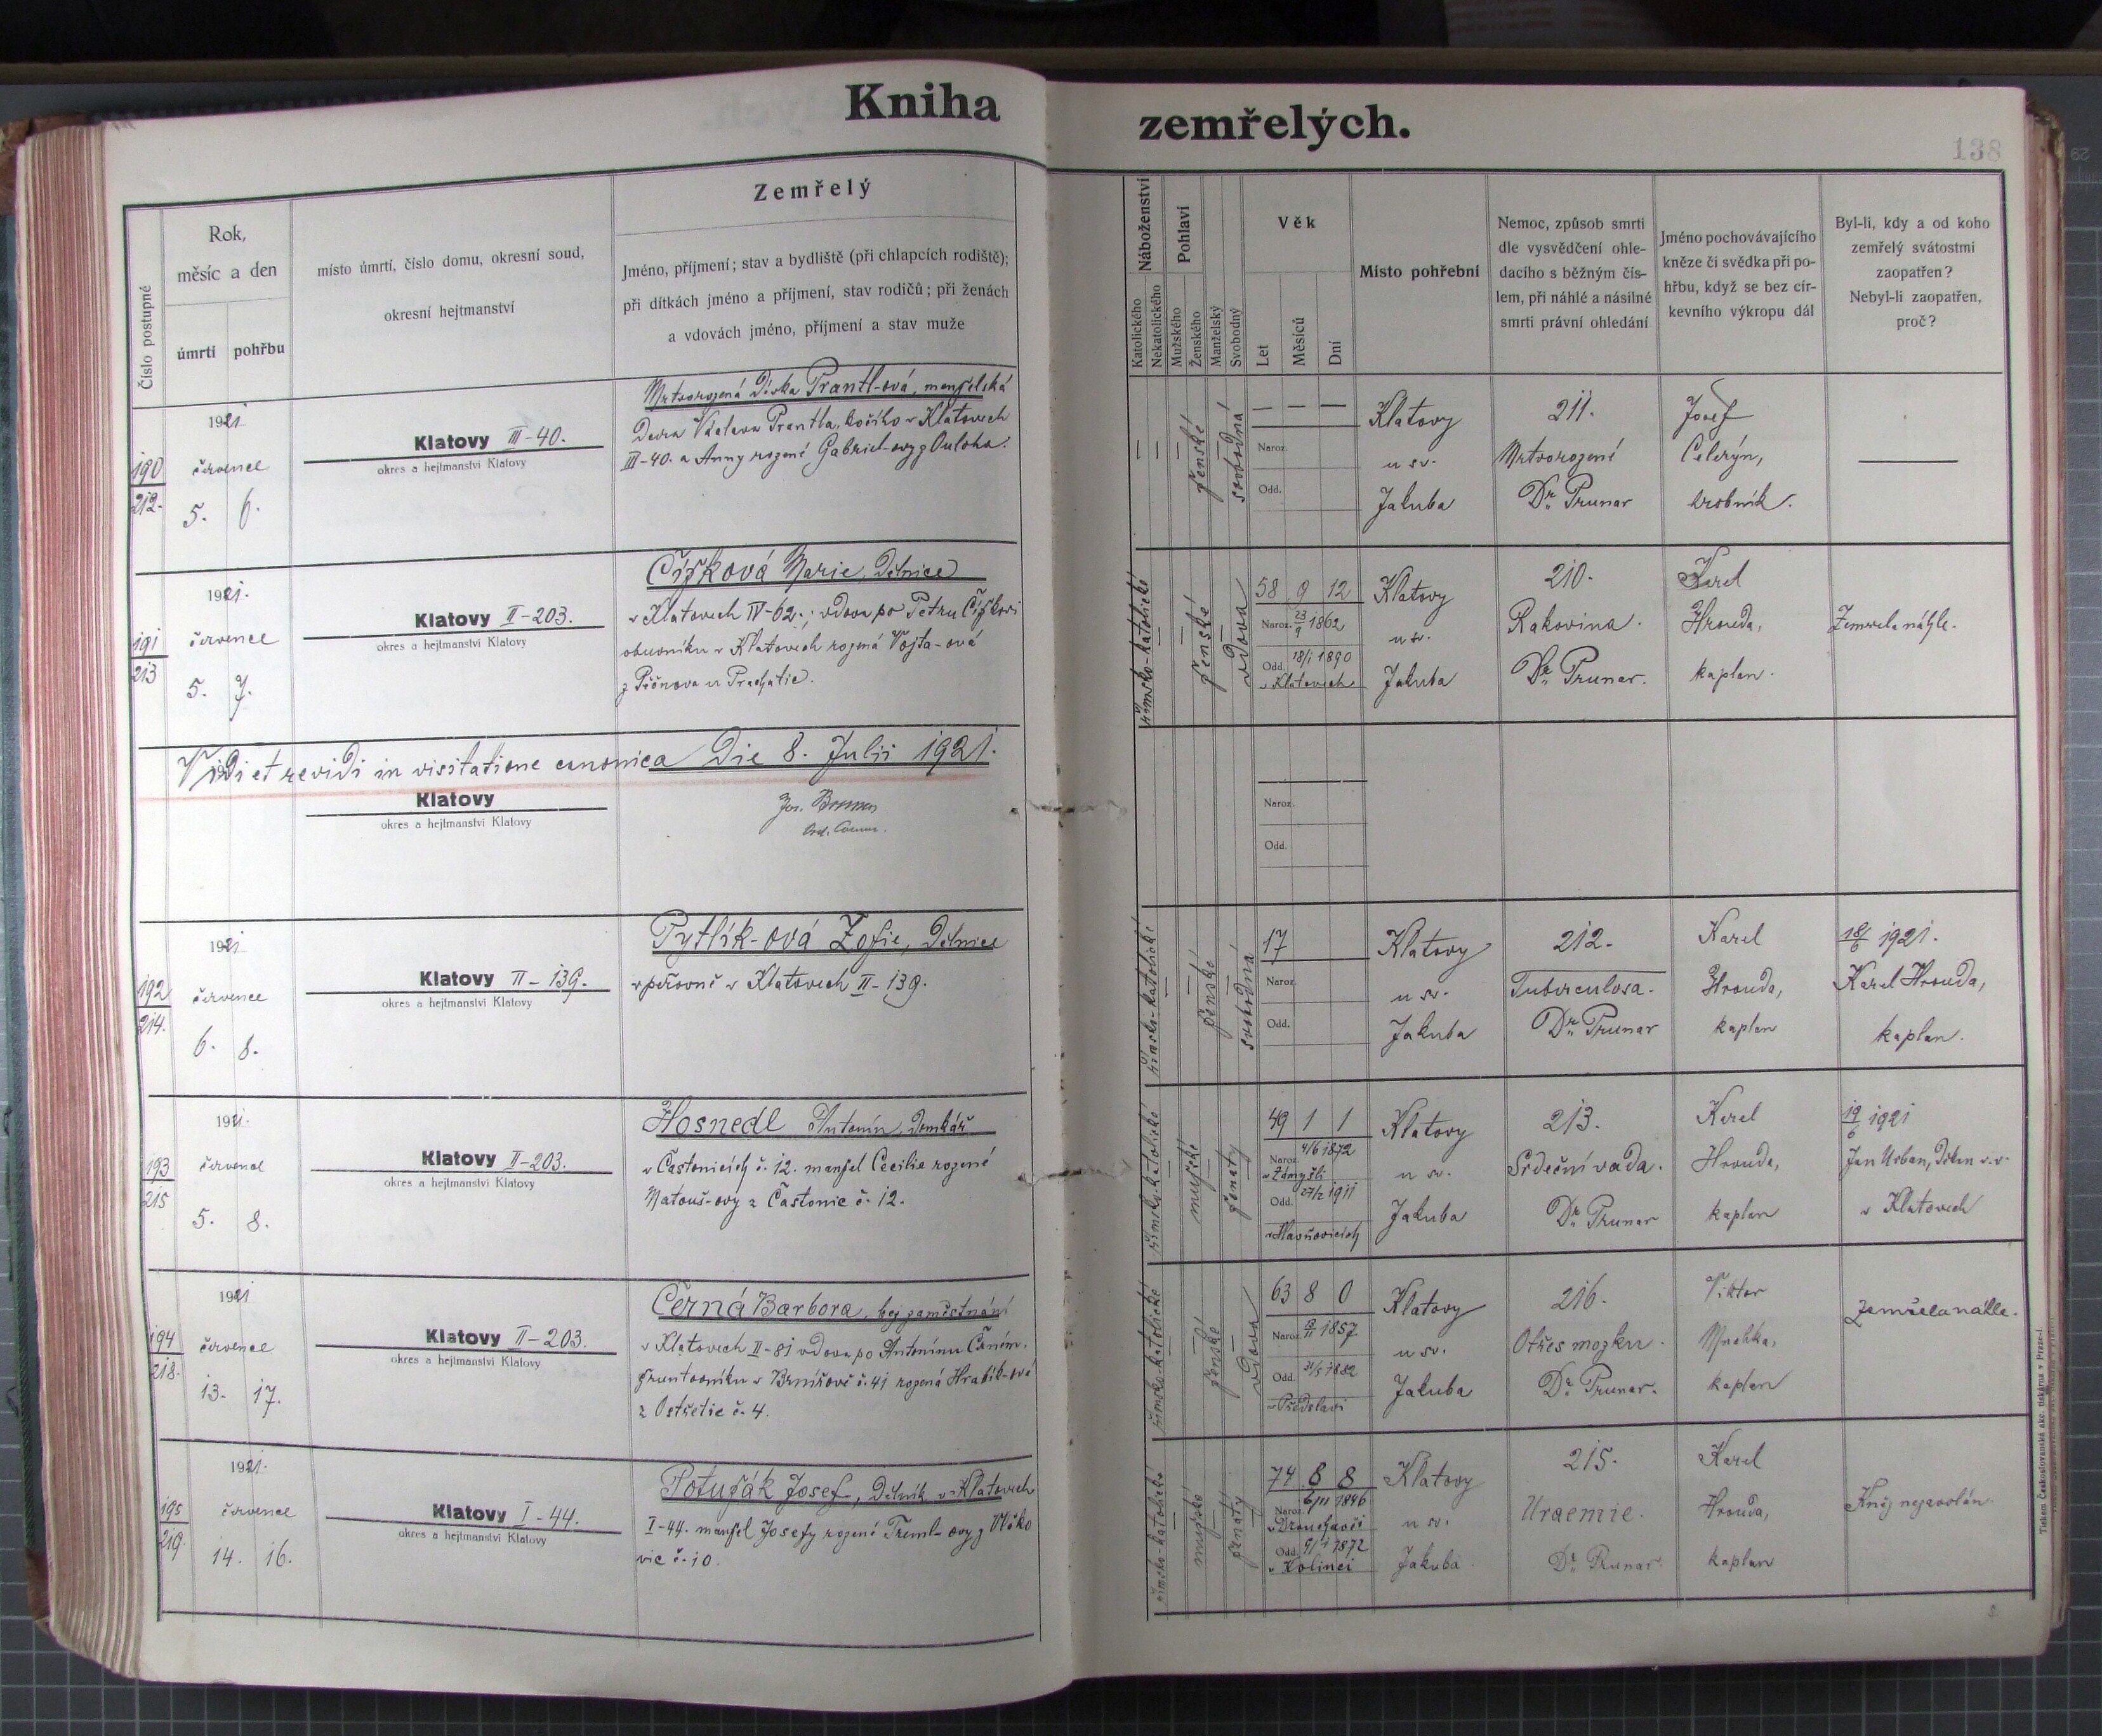 Kniha zemřelých.
138
Číslo postupné
Rok,
měsíc a den
úmrtí pohřbu
místo úmrtí, číslo domu, okresní soud,
okresní hejtmanství
Zemřelý
Jméno, příjmení; stav a bydliště (při chlapcích rodiště);
při dítkách jméno a příjmení, stav rodičů; při ženách
a vdovách jméno, příjmení a stav muže
Náboženství
Katolického
Nekatolického
Pohlaví
Mužského
Ženského
Manželský
Svobodný
Věk
Let
Měsíců
Dní
Místo pohřební
Nemoc, způsob smrti
dle vysvědčení ohle-
dacího s běžným čís-
lem, při náhlé a násilné
smrti právní ohledání
Jméno pochovávajícího
kněze či svědka při po-
hřbu, když se bez cír-
kevního výkropu dál
Byl-li, kdy a od koho
zemřelý svátostmi
zaopatřen?
Nebyl-li zaopatřen,
proč?
190
212.
1921
července
5. 6.
Klatovy III-40.
okres a hejtmanství Klatovy
Mrtvorozená Dívka Prantl-ová, manželská
Dcera Václava Prantla, kočího v Klatovech
III-40. a Anny rozené Gabriel-ovy z Ouloha.
— —
ženské
svobodná
— — —
Naroz.
Odd.
Klatovy
u sv.
Jakuba
211.
Mrtvorozené
Dr. Prunar
Josef
Celerýn,
hrobník.
—
191
213
1921.
července
5. 7.
Klatovy II-203.
okres a hejtmanství Klatovy
Čížková Marie, Dělnice
v Klatovech IV-62.; vdova po Petru Čížkovi
obuvníku v Klatovech rozená Vojta-ová
z Pěčnova u Prachatic.
římsko-katolické
ženské
vdova
58 9 12
Naroz. 23/9 1862
Odd. 18/1 1890
v Klatovech
Klatovy
u sv.
Jakuba
210.
Rakovina.
Dr. Prunar.
Karel
Hrouda,
kaplan.
Zemřela náhle.
Vidi et revidi in visitatione canonica Die 8. Julii 1921.
Klatovy
okres a hejtmanství Klatovy
Naroz.
Odd.
192
214.
1921
července
6. 8.
Klatovy II-139.
okres a hejtmanství Klatovy
Pytlík-ová Žofie, Dělnice
v péřovně v Klatovech II-139.
římsko-katolické
ženské
svobodná
17
Naroz.
Odd.
Klatovy
u sv.
Jakuba
212.
Tuberculosa.
Dr. Prunar
Karel
Hrouda,
kaplan
18/6 1921.
Karel Hrouda,
kaplan.
193
215
1921.
července
5. 8.
Klatovy II-203.
okres a hejtmanství Klatovy
Hosnedl Antonín, Domkář
v Častonicích č. 12. manžel Cecilie rozené
Matouš-ovy z Častonic č. 12.
římsko-katolické
mužské
ženatý
49 1 1
Naroz. 4/6 1872
v Zámyšli
Odd. 27/2 1911
v Hlavňovicích
Klatovy
u sv.
Jakuba
213.
Srdeční vada.
Dr. Prunar
Karel
Hrouda,
kaplan
19/6 1921
Jan Urban, Děkan v.v.
v Klatovech
194
218.
1921
července
13. 17.
Klatovy II-203.
okres a hejtmanství Klatovy
Černá Barbora, bez zaměstnání
v Klatovech II-81 vdova po Antonínu Černém.
gruntovníku v Brnířově č. 41 rozená Hrabík-ová
z Ostřetic č. 4.
římsko-katolické
ženské
vdova
63 8 0
Naroz. 13/11 1857
Odd. 31/5 1882
v Předslavi
Klatovy
u sv.
Jakuba
216.
Otřes mozku.
Dr. Prunar.
Viktor
kaplan
Zemřela náhle.
195
219.
1921.
července
14. 16.
Klatovy I-44.
okres a hejtmanství Klatovy
Potužák Josef, Dělník v Klatovech
I-44. manžel Josefy rozené Treml-ovy z Vlčko
vic č. 10.
římsko-katolické
mužské
ženatý
74 8 8
Naroz. 6/11 1846
Odd. 9/1 1872
v Kolinci
Klatovy
u sv.
Jakuba
215.
Uraemie.
Dr. Prunar.
Karel
Hrouda,
kaplan
Kněz nezavolán.
Tiskem Československá akc. tiskárna v Praze-I.